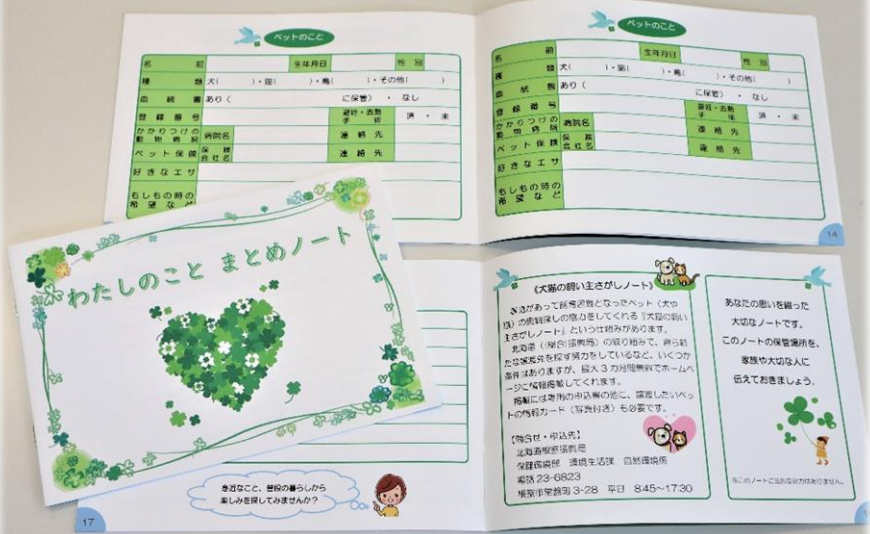 ペットのこと
名前 生年月日 性別
種類 犬( )・猫( )・鳥( )・その他( )
血統書 あり( に保管)・なし
登録番号 避妊・去勢手術 済・未
かかりつけの動物病院 病院名 連絡先
ペット保険 保険会社名 連絡先
好きなエサ
もしもの時の希望など
ペットのこと
名前 生年月日 性別
種類 犬( )・猫( )・鳥( )・その他( )
血統書 あり( に保管)・なし
登録番号 避妊・去勢手術 済・未
かかりつけの動物病院 病院名 連絡先
ペット保険 保険会社名 連絡先
好きなエサ
もしもの時の希望など
14
わたしのこと まとめノート
身近なこと、普段の暮らしから
楽しみを探してみませんか?
17
《犬猫の飼い主さがしノート》
事情があって飼育困難となったペット(犬や
猫)の飼い主探しの協力をしてくれる『犬猫の飼い
主さがしノート』という仕組みがあります。
北海道((総合)振興局)の取り組みで、自ら新
たな譲渡先を探す努力をしているなど、いくつか
条件はありますが、最大3カ月間無料でホームペ
ージに情報掲載してくれます。
掲載には専用の申込書の他に、譲渡したいペッ
トの情報カード(写真付き)も必要です。
【問合せ・申込先】
北海道根室振興局
保健環境部 環境生活課 自然環境係
電話 23-6823
根室市常盤町3-28 平日 8:45~17:30
あなたの思いを綴った
大切なノートです。
このノートの保管場所を、
家族や大切な人に
伝えておきましょう。
※このノートに法的な効力はありません。